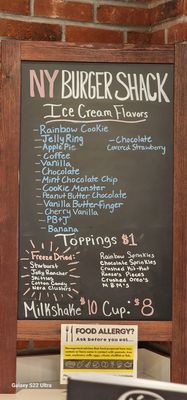 NY BURGER SHACK
Ice Cream Flavors
- Rainbow Cookie
- Jelly Ring
- Apple Pie
- Coffee
- Vanilla
- Chocolate
- Mint Chocolate Chip
- Cookie Monster
- Peanut Butter Chocolate
- Vanilla Butterfinger
- Cherry Vanilla
- PB+J
- Banana
- Chocolate
Covered Strawberry
Toppings $1
Freeze Dried:
Starburst
Jolly Rancher
Skittles
Cotton Candy
Nerd Clusters
Rainbow Sprinkles
Chocolate Sprinkles
Crushed Kit-Kat
Reese's Pieces
Crushed Oreo's
M&M's
Milkshake $10 Cup: $8
FOOD ALLERGY?
Ask before you eat.
Galaxy S22 Ultra